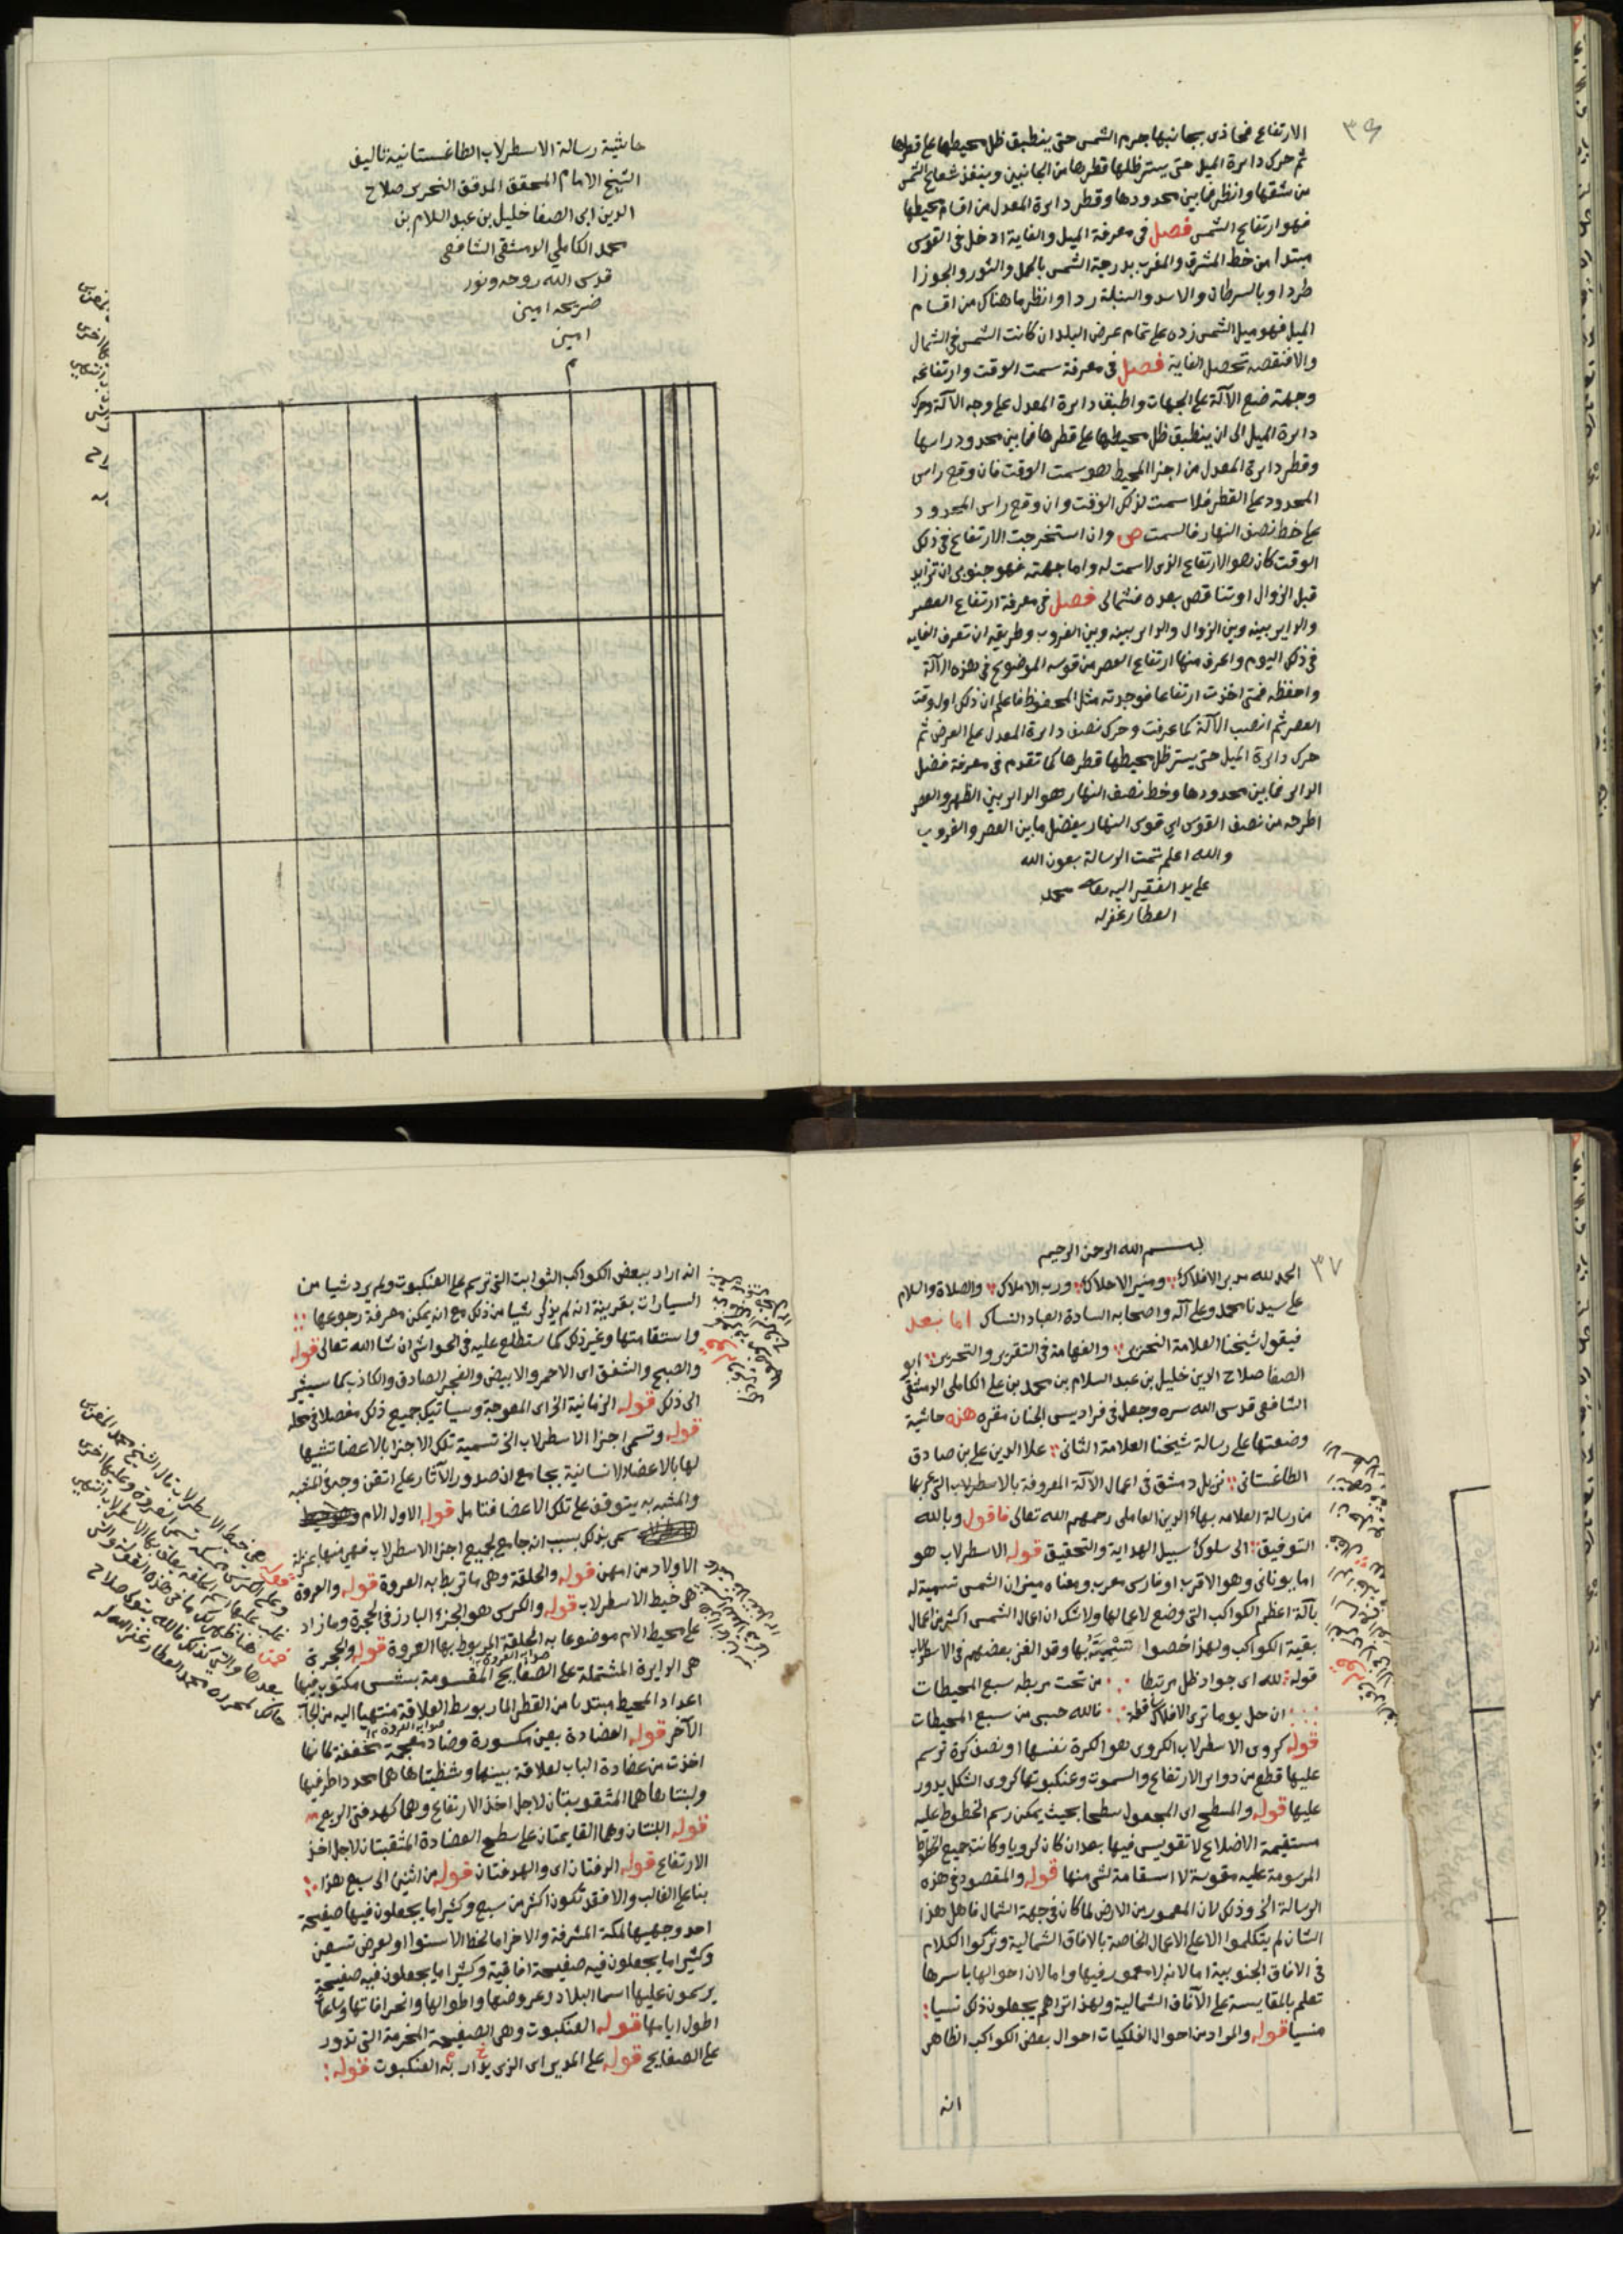 ٣٦
الارتفاع فحاذى بجانبها جرم الشمس حتى ينطبق ظل محيطها على قطرها
ثم حرك دايرة الميل حتى يستر ظلها قطرها من الجانبين وينفذ شعاع الشمس
من شقها وانظر فما بين محدودها وقطر دايرة المعدل من اقسام محيطها
فهو ارتفاع الشمس فصل في معرفة الميل والغاية ادخل في القوس
مبتدا من خط المشرق والمغرب بدرجة الشمس بالحمل والثور والجوزا
طردا وبالسرطان والاسد والسنبلة ردا وانظر ما هناك من اقسام
الميل فهو ميل الشمس زده على تمام عرض البلد ان كانت الشمس في الشمال
والا فنقصه تحصل الغاية فصل في معرفة سمت الوقت وارتفاعه
وجهته ضع الآلة على الجهات واطبق دايرة المعدل على وجه الآلة وحرك
دايرة الميل الى ان ينطبق ظل محيطها على قطرها فما بين محدود راسها
وقطر دايرة المعدل من اجزا المحيط هو سمت الوقت فان وقع راس
المحدود على القطر فلا سمت لذلك الوقت وان وقع راس المحدود
على خط نصف النهار فالسمت ص وان استخرجت الارتفاع في ذلك
الوقت كان هو الارتفاع الذي لا سمت له واما جهته فهو جنوبي ان تزايد
قبل الزوال او تناقص بعده فشمالي فصل في معرفة ارتفاع العصر
والداير بينه وبين الزوال والداير بينه وبين الغروب وطريقه ان تعرف الغايه
في ذلك اليوم واعرف منها ارتفاع العصر من قوسه الموضوع في هذه الآلة
واحفظه فمتى اخذت ارتفاعا فوجدته مثل المحفوظ فاعلم ان ذلك اول وقت
العصر ثم انصب الآلة كما عرفت وحرك نصف دايرة المعدل على العرض ثم
حرك دايرة الميل حتى يستر ظل محيطها قطرها كما تقدم في معرفة فضل
الداير فما بين محدودها وخط نصف النهار هو الداير بين الظهر والعصر
اطرحه من نصف القوس اي قوس النهار يفضل ما بين العصر والغروب
والله اعلم تمت الرسالة بعون الله
على يد الفقير اليه تعالى محمد
العطار غفر له
حاشية رسالة الاسطرلاب الطاغستانية تاليف
الشيخ الامام المحقق المدقق النحرير صلاح
الدين ابي الصفا خليل بن عبد السلام بن
محمد الكاملي الدمشقي الشافعي
قدس الله روحه ونور
ضريحه امين
امين
م
٣٧
بسم الله الرحمن الرحيم
الحمد لله مدبر الافلاك ومنير الاحلاك ورب الاملاك والصلاة والسلام
على سيدنا محمد وعلى آله واصحابه السادة العباد النساك اما بعد
فيقول شيخنا العلامة النحرير والفهامة في التقرير والتحرير ابو
الصفا صلاح الدين خليل بن عبد السلام بن محمد بن علي الكاملي الدمشقي
الشافعي قدس الله سره وجعل في فراديس الجنان مقره هذه حاشية
وضعتها على رسالة شيخنا العلامة الثاني علا الدين علي بن صادق
الطاغستاني نزيل دمشق في اعمال الآلة المعروفة بالاسطرلاب التي عربها
من رسالة العلامه بهاء الدين العاملي رحمهم الله تعالى فاقول وبالله
التوفيق الى سلوك سبيل الهداية والتحقيق قوله الاسطرلاب هو
اما يوناني وهو الاقرب او فارسي معرب ومعناه ميزان الشمس تسمية له
بآلة اعظم الكواكب التي وضع لاعمالها ولا شك ان اعمال الشمس اكثر من اعمال
بقية الكواكب ولهذا خصوا تسميته بها وقد الغز بعضهم في الاسطرلاب
قوله لله اي جواد ظل مرتبطا من تحت مربطه سبع المحيطات
ان حل يوما ترى الافلاك ساقطة نالله حسبي من سبع المحيطات
قوله كروي الاسطرلاب الكروي هو الكرة نفسها او نصف كرة ترسم
عليها قطع من دواير الارتفاع والسموت وعنكبوتها كروي الشكل يدور
عليها قوله والمسطح اي المجعول سطحا بحيث يمكن رسم الخطوط عليه
مستقيمة الاضلاع لا تقويس فيها بعد ان كان كرويا وكانت جميع الخطوط
المرسومة عليه مقوسة لا استقامة لشي منها قوله والمقصود في هذه
الرسالة الخ وذلك لان المعمور من الارض لما كان في جهة الشمال فاهل هذا
الشان لم يتكلموا الا على الاعمال الخاصة بالافاق الشمالية وتركوا الكلام
في الافاق الجنوبية اما لانه لا معمور فيها واما لان احوالها باسرها
تعلم بالمقايسة على الآفاق الشمالية ولهذا تراهم يجعلون ذلك نسيا
منسيا قوله والمراد من احوال الفلكيات احوال بعض الكواكب الظاهر
انه
انه اراد ببعض الكواكب الثوابت التي ترسم على العنكبوت ولم يرد شيا من
السيارات بقرينة انه لم يذكر شيا من ذلك مع انه يمكن معرفة رجوعها
واستقامتها وغير ذلك كما ستطلع عليه في الحواشي ان شا الله تعالى قوله
والصبح والشفق اي الاحمر والابيض والفجر الصادق والكاذب كما سيشير
الى ذلك قوله الزمانية الخ اي المعوجة وسياتيك جميع ذلك مفصلا في محله
قوله وتسمى اجزا الاسطرلاب الخ تسمية تلك الاجزا بالاعضا تشبيها
لها بالاعضاء الانسانية بجامع ان صدور الآثار على اتقن وجه في المشبه
والمشبه به يتوقف على تلك الاعضا فتامل قوله الاول الام
سمي بذلك بسبب انه جامع لجميع اجزا الاسطرلاب فهي منها بمنزلة
الاولاد من امهن قوله والحلقة وهي ما تربط به العروة قوله والعروة
هي خيط الاسطرلاب قوله والكرسي هو الجزء البارز في الحجرة وما زاد
على محيط الام موضوعا به الحلقة المربوط بها العروة قوله والحجرة
هي الدايرة المشتملة على الصفايح المقسومة بشس مكتوب فيها
اعداد المحيط مبتديا من القطر المار بوسط العلاقة منتهيا اليه من الجانب
الآخر قوله العضادة بعين مكسورة وضاد معجمة مخففة كانها
اخذت من عضادة الباب لعلاقة بينهما وشظيتاها هما محددا طرفيها
ولبنتاها هما المثقوبتان لاجل اخذ الارتفاع وهما كهدفتي الربع
قوله اللبنتان وهما القايمتان على سطح العضادة المثقبتان لاجل اخذ
الارتفاع قوله الدفتان اي والهدفتان قوله من اثنين الى سبع هذا
بناء على الغالب والا فقد تكون اكثر من سبع وكثيرا ما يجعلون فيها صفيحة
احد وجهيها لمكة المشرفة والاخر اما لخط الاستوا او لعرض تسعين
وكثيرا ما يجعلون فيه صفيحة افاقية وكثيرا ما يجعلون فيه صفيحة
يرسمون عليها اسما البلاد وعروضها واطوالها وانحرافاتها وساعات
اطول ايامها قوله العنكبوت وهي الصفيحة المخرمة التي تدور
على الصفايح قوله على المدير اي الذي يدار به العنكبوت قوله